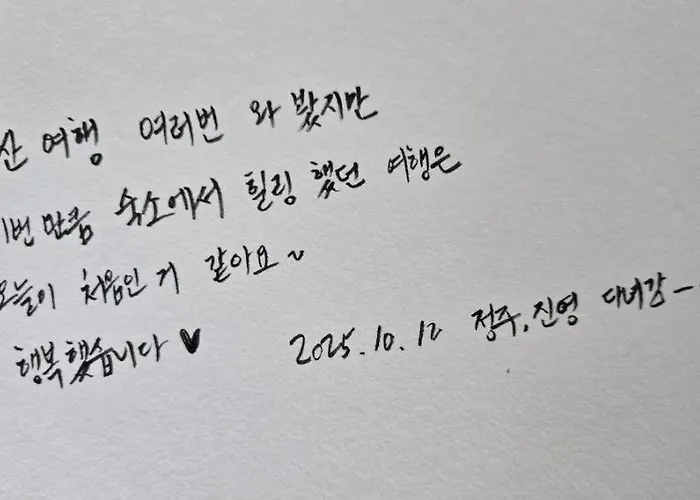 산 여행 여러번 와 봤지만
이번 만큼 숙소에서 힐링 했던 여행은
오늘이 처음인 거 같아요~
행복했습니다 ♥
2025.10.12 정주, 진영 다녀감-